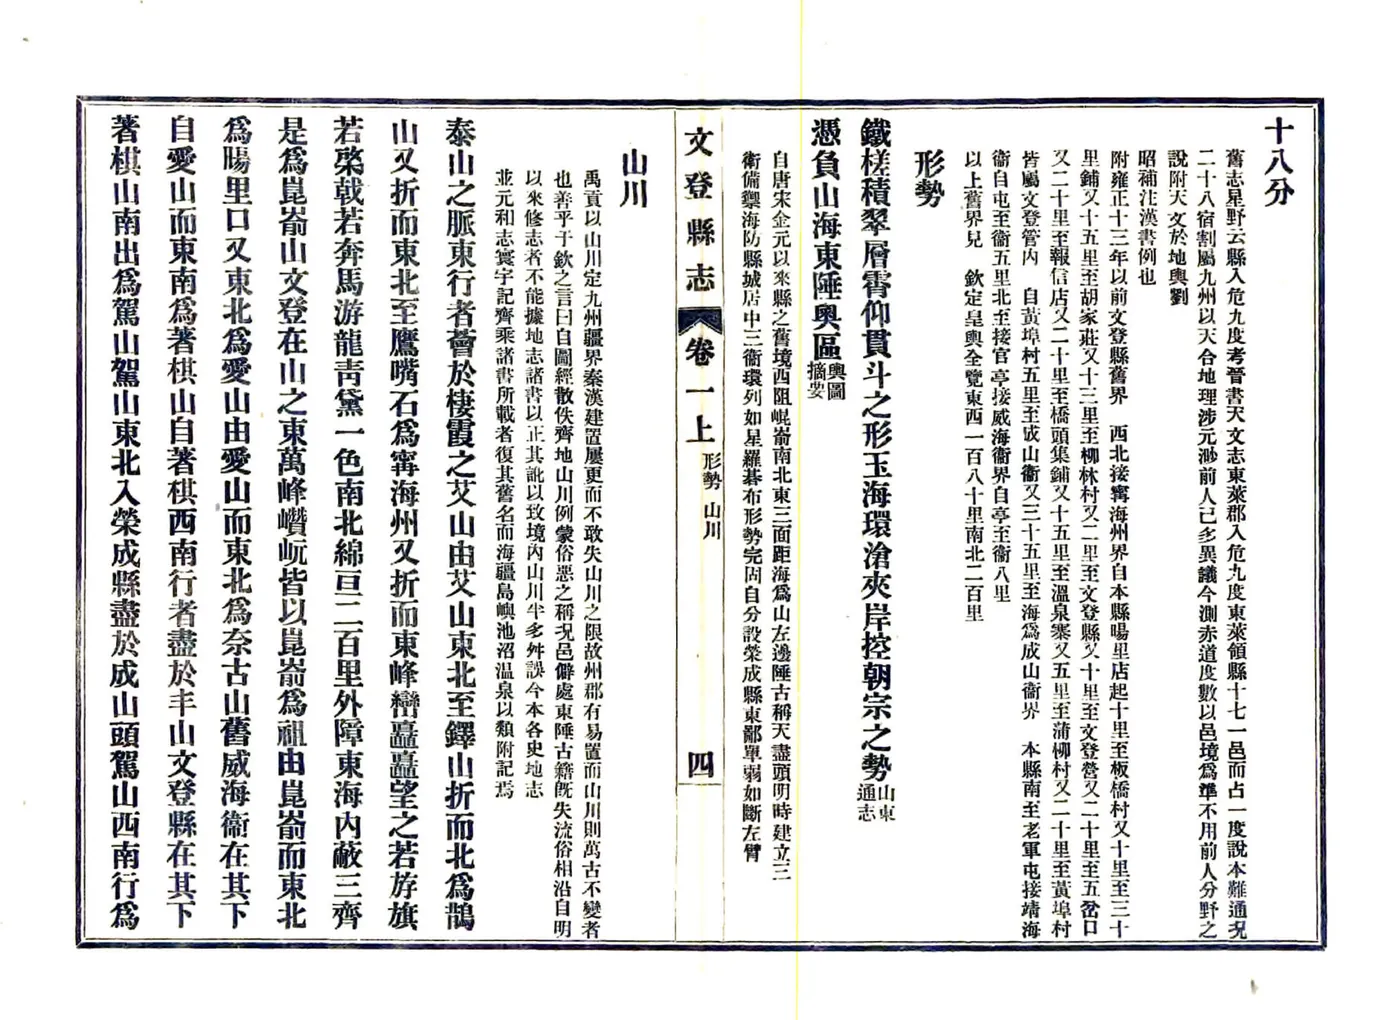 十八分
舊志星野云縣入危九度考晉書天文志東萊郡入危九度東萊領縣十七一邑而占一度說本難通況
二十八宿割屬九州以天合地理涉元渺前人已多異議今測赤道度數以邑境爲準不用前人分野之
說附天文於地輿劉
昭補注漢書例也
附雍正十三年以前文登縣舊界　西北接甯海州界自本縣暘里店起十里至板橋村又十里至三十
里鋪又十五里至胡家莊又十三里至柳林村又二里至文登縣又十里至文登營又二十里至五岔口
又二十里至報信店又二十里至橋頭集鋪又十五里至溫泉寨又五里至蒲柳村又二十里至黃埠村
皆屬文登管內　自黃埠村五里至成山衞又三十五里至海爲成山衞界　本縣南至老軍屯接靖海
衞自屯至衞五里北至接官亭接威海衞界自亭至衞八里
以上舊界見　欽定皇輿全覽東西一百八十里南北二百里
形勢
鐵槎積翠層霄仰貫斗之形玉海環滄夾岸控朝宗之勢山東通志
憑負山海東陲奧區輿圖摘要
自唐宋金元以來縣之舊境西阻崐崳南北東三面距海爲山左邊陲古稱天盡頭明時建立三
衞備禦海防縣城居中三衞環列如星羅碁布形勢完固自分設榮成縣東鄙單弱如斷左臂
文登縣志
卷一上
形勢　山川
四
山川
禹貢以山川定九州疆界秦漢建置屢更而不敢失山川之限故州郡有易置而山川則萬古不變者
也善乎于欽之言曰自圖經散佚齊地山川例蒙俗惡之稱況邑僻處東陲古籍旣失流俗相沿自明
以來修志者不能據地志諸書以正其訛以致境內山川半多舛誤今本各史地志
並元和志寰宇記齊乘諸書所載者復其舊名而海疆島嶼池沼溫泉以類附記焉
泰山之脈東行者薈於棲霞之艾山由艾山東北至鐸山折而北爲鵲
山又折而東北至鷹嘴石爲甯海州又折而東峰巒矗矗望之若斿旗
若棨戟若奔馬游龍靑黛一色南北綿亘二百里外障東海內蔽三齊
是爲崑崳山文登在山之東萬峰巑岏皆以崑崳爲祖由崑崳而東北
爲暘里口又東北爲愛山由愛山而東北爲奈古山舊威海衞在其下
自愛山而東南爲著棋山自著棋西南行者盡於丰山文登縣在其下
著棋山南出爲駕山駕山東北入榮成縣盡於成山頭駕山西南行爲